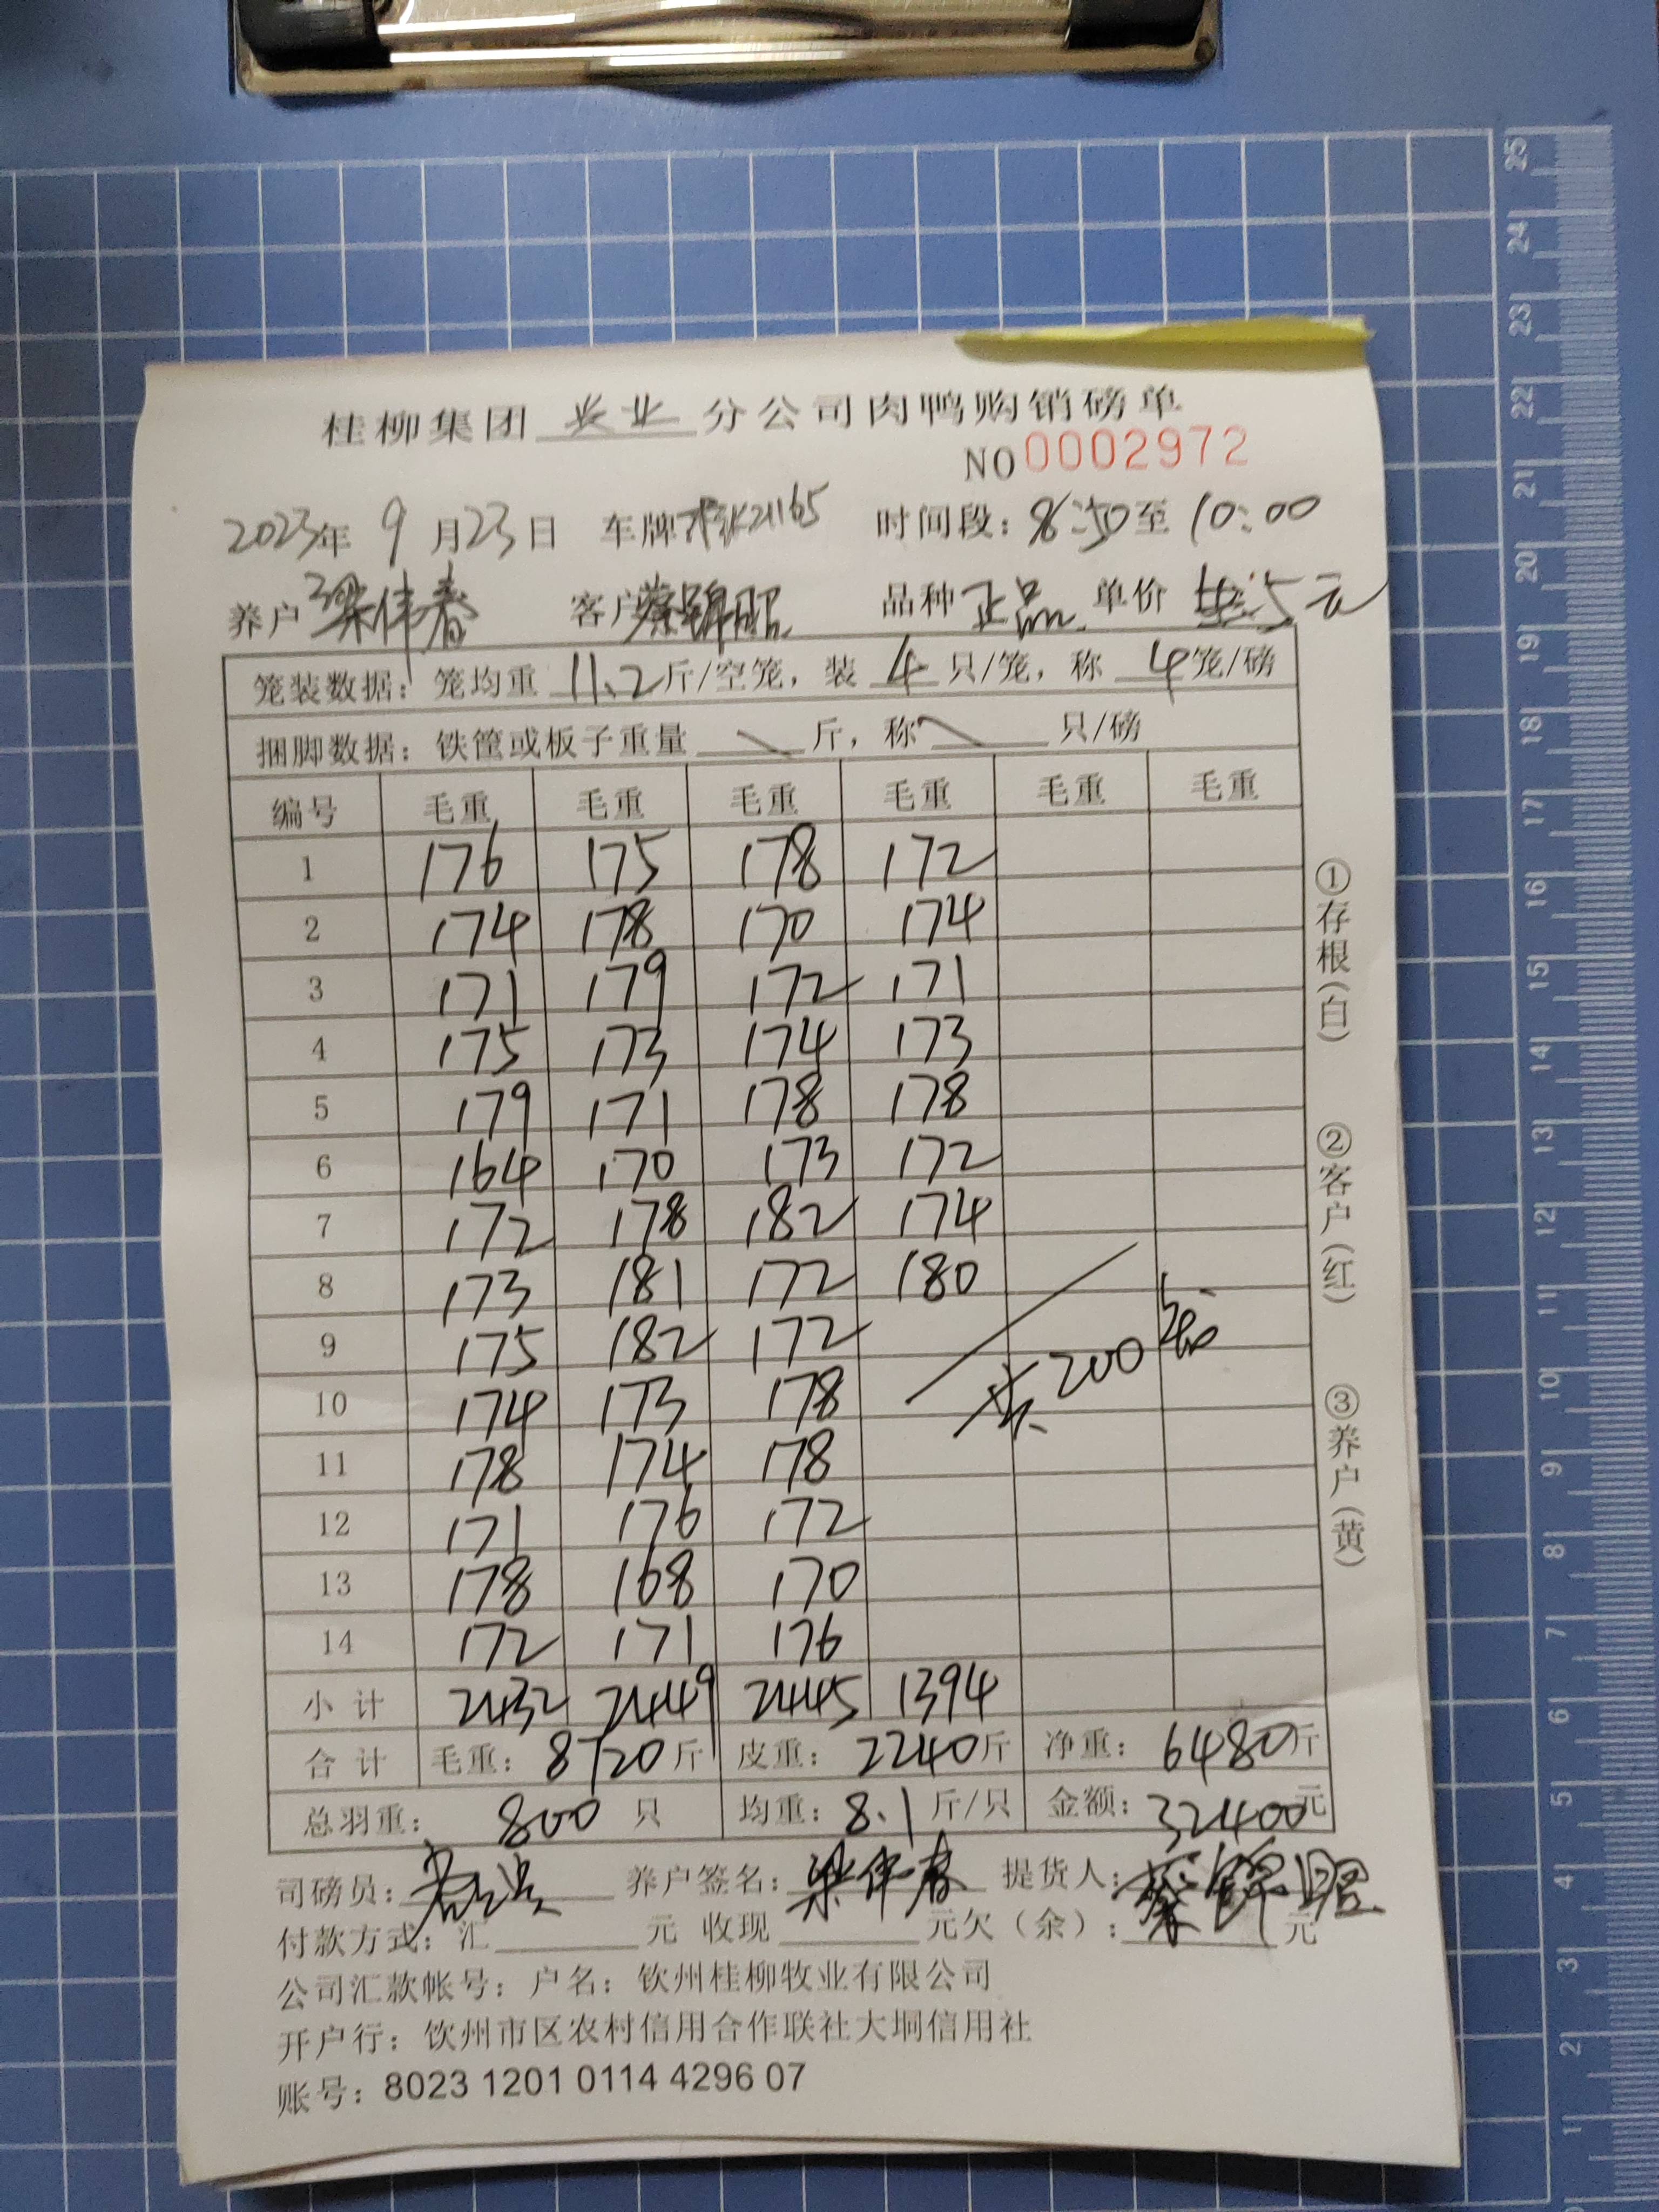 桂柳集团 兴业 分公司肉鸭购销磅单
NO 0002972
2023年 9 月 23 日 车牌 21165 时间段: 8:50 至 10:00
养户 梁伟春 客户 蔡锦昭 品种 正品 单价 5元
笼装数据: 笼均重 11.2 斤/空笼, 装 4 只/笼, 称 4 笼/磅
捆脚数据: 铁筐或板子重量 \ 斤, 称 \ 只/磅
编号 毛重 毛重 毛重 毛重 毛重 毛重
1 176 175 178 172
2 174 178 170 174
3 171 179 172 171
4 175 173 174 173
5 179 171 178 178
6 164 170 173 172
7 172 178 182 174
8 173 181 172 180
9 175 182 172
10 174 173 178
共200笼
11 178 174 178
12 171 176 172
13 178 168 170
14 172 171 176
小计 2432 2449 2445 1394
合计 毛重: 8720斤 皮重: 2240斤 净重: 6480斤
总羽重: 800 只 均重: 8.1 斤/只 金额: 32400元
司磅员: 养户签名: 梁伟春 提货人: 蔡锦昭
付款方式: 汇 元 收现 元欠(余): 元
公司汇款帐号: 户名: 钦州桂柳牧业有限公司
开户行: 钦州市区农村信用合作联社大垌信用社
账号: 8023 1201 0114 4296 07
①存根(白) ②客户(红) ③养户(黄)
25
24
23
22
21
20
19
18
17
16
15
14
13
12
11
10
9
8
7
6
5
4
3
2
1